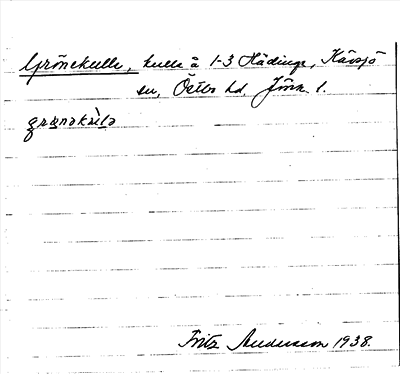 Grönekulle, kulle å 1-3 Hädinge, Kävsjö
sn, Östbo hd. Jönk. l.
Fritz Andersson 1938.